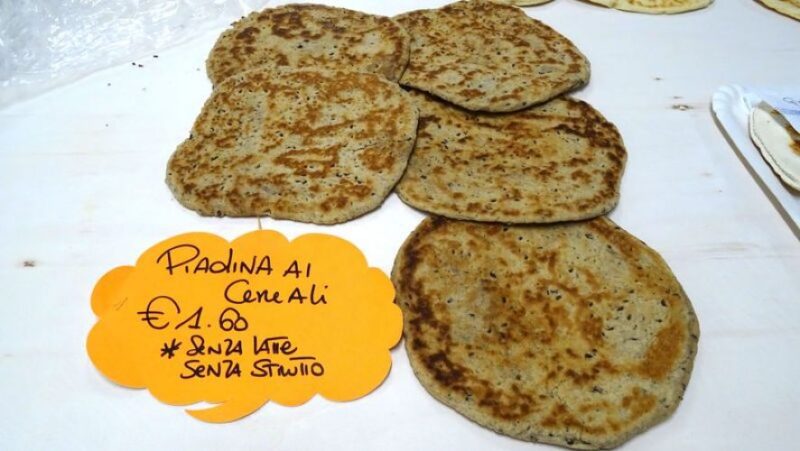 PIADINA AI
CereAli
€ 1.60
* SENZA lATTE
SENZA STRUTTO